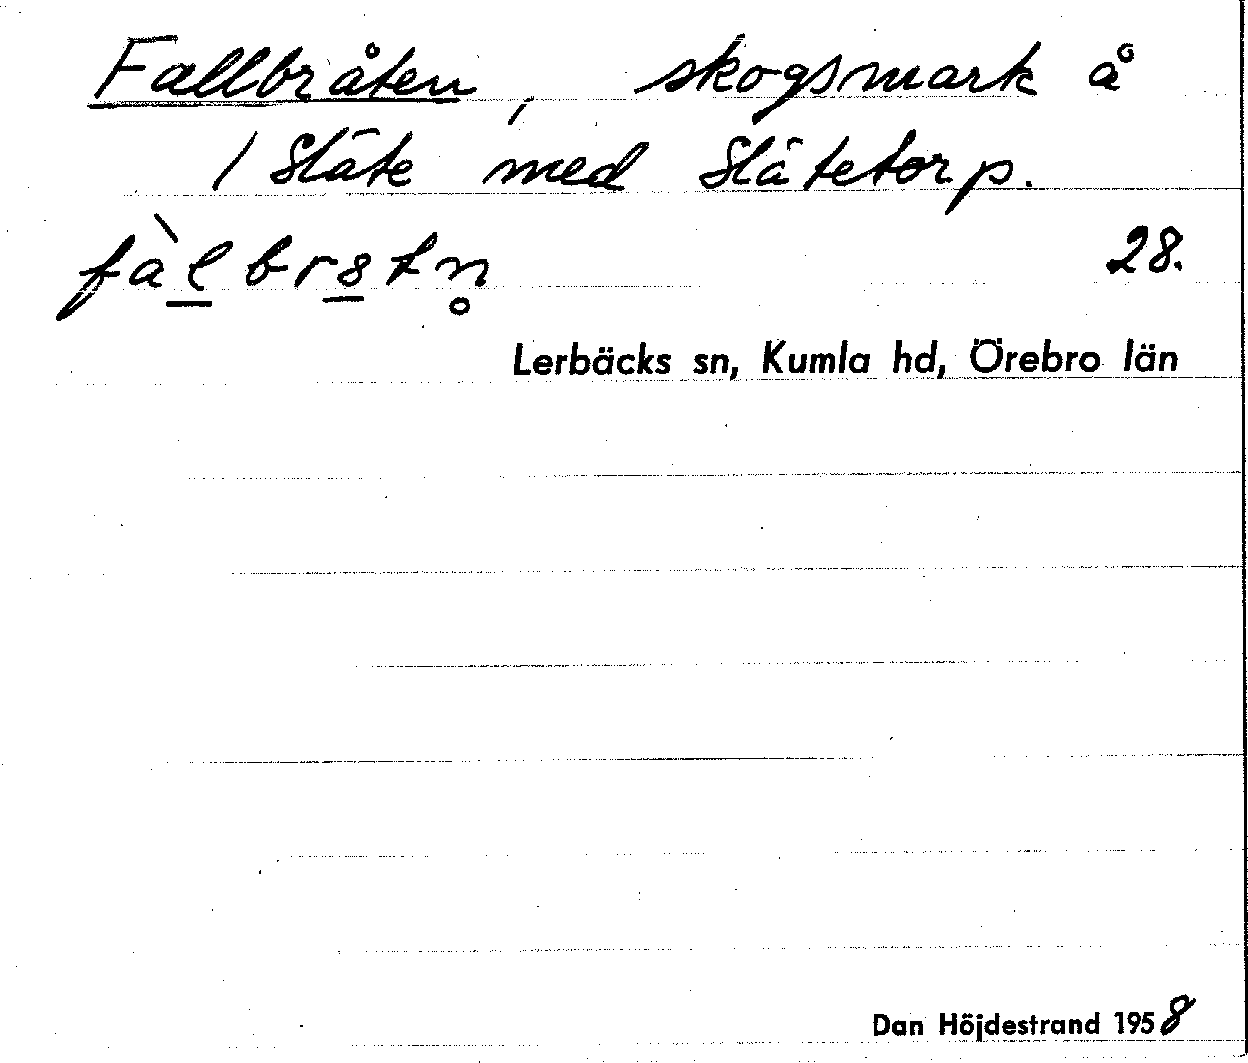 Fallbråten, skogsmark å
1 Släte med Slätetorp.
fàl̲ br8̲tn̥ 28.
Lerbäcks sn, Kumla hd, Örebro län
Dan Höjdestrand 1958